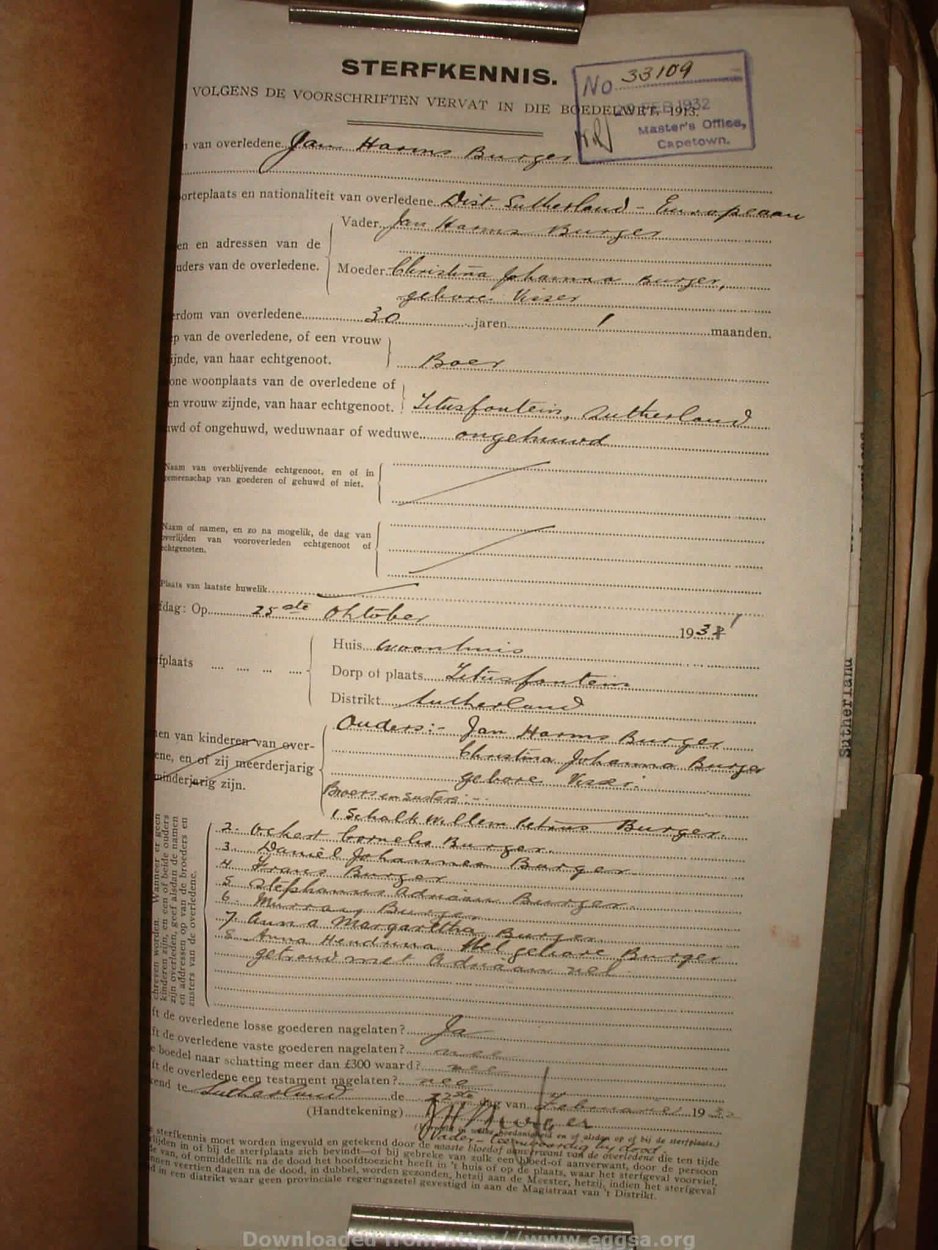 STERFKENNIS.
No 33109
VOLGENS DE VOORSCHRIFTEN VERVAT IN DIE BOEDELWET, 1913.
FEB 1932
Master's Office,
Capetown.
van overledene Jan Harms Burger
orteplaats en nationaliteit van overledene Dist. Sutherland - Europeaan
Vader Jan Harms Burger
en en adressen van de
uders van de overledene.
Moeder Christina Johanna Burger,
gebore Visser
erdom van overledene 30 jaren 1 maanden.
ep van de overledene, of een vrouw
ijnde, van haar echtgenoot. Boer
one woonplaats van de overledene of
en vrouw zijnde, van haar echtgenoot. Titusfontein, Sutherland
uwd of ongehuwd, weduwnaar of weduwe ongehuwd
Naam van overblijvende echtgenoot, en of in
gemeenschap van goederen of gehuwd of niet.
Naam of namen, en zo na mogelik, de dag van
overlijden van vooroverleden echtgenoot of
echtgenoten.
Plaats van laatste huwelik
fdag: Op 25ste Oktober 1931
Huis woonhuis
fplaats
Dorp of plaats Titusfontein
Distrikt Sutherland
Ouders:- Jan Harms Burger
en van kinderen van over-
Christina Johanna Burger
ene, en of zij meerderjarig
gebore Visser.
minderjarig zijn.
Broers en Susters:-
1. Schalk Willem Petrus Burger.
2. Ockert Cornelis Burger.
3. Daniel Johannes Burger
4. Frans Burger
5. Stephanus Adriaan Burger.
6. Murray Burger
7. Anna Margaretha Burger
8. Anna Hendrina Nel gebore Burger
getroud met Adriaan Nel
chreven worden. Wanneer er geen
kinderen zijn, en een of beide ouders
zijn overleden, geef alsdan de namen
en addressen op van de broeders en
zusters van de overledene.
ft de overledene losse goederen nagelaten? Ja
ft de overledene vaste goederen nagelaten? nee
e boedel naar schatting meer dan £300 waard? nee
ft de overledene een testament nagelaten? nee
kend te Sutherland de 22ste dag van Februarie 1932
(Handtekening) Burger
Vader - teenwoordig by dood
sterfkennis moet worden ingevuld en getekend door de naaste bloedof aanverwant van de overledene die ten tijde
lijden in of bij de sterfplaats zich bevindt—of bij gebreke van zulk een bloed-of aanverwant, door de persoon
e van, of onmiddellik na de dood het hoofdtoezicht heeft in 't huis of op de plaats, waar het sterfgeval voorviel,
nnen veertien dagen na de dood, in dubbel, worden gezonden, hetzij aan de Meester, hetzij, indien het sterfgeval
d in een distrikt waar geen provinciale regeringszetel gevestigd in aan de Magistraat van 't Distrikt.
Sutherland
Downloaded from http://www.eggsa.org